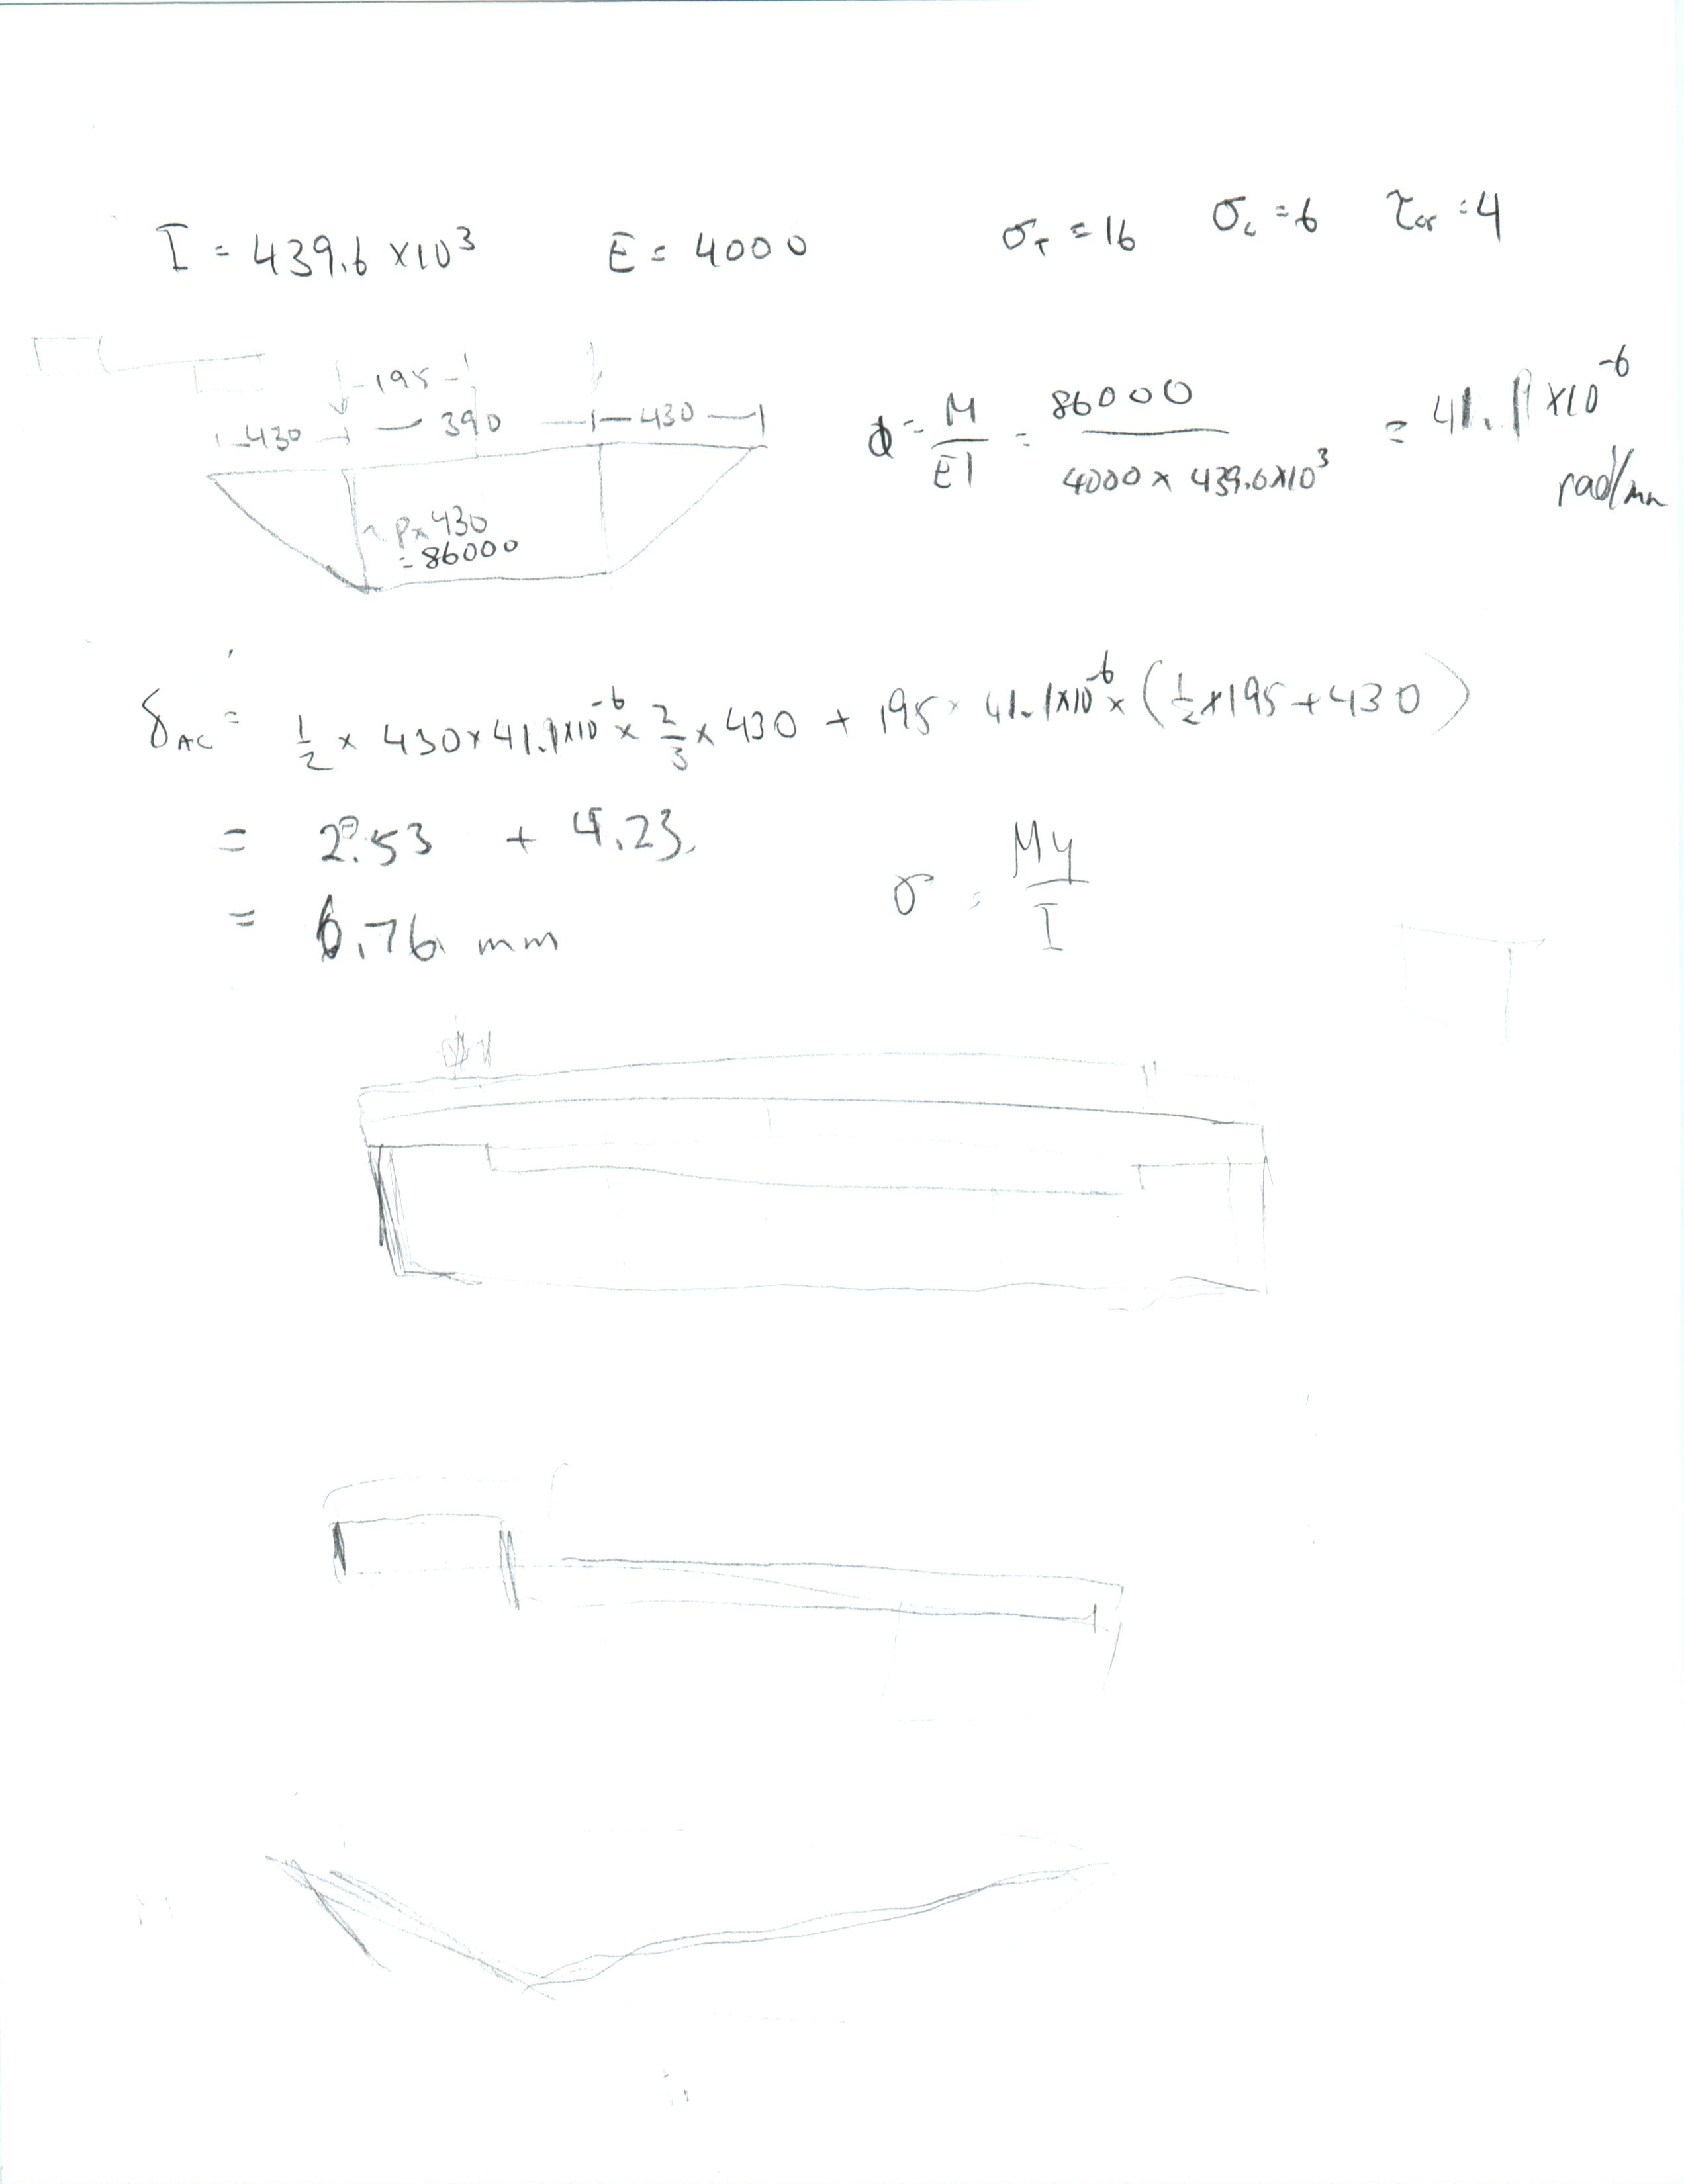 I = 439.6 ×10³ E = 4000 σ_T = 16 σ_c = 6 τ_cr = 4
195
430 390 430
P× 430
= 86000
ϕ = M/EI = 86000/(4000 × 439.6×10³) = 41.1 ×10⁻⁶
rad/mm
δ_AC = 1/2 × 430 × 41.1×10⁻⁶ × 2/3 × 430 + 195 × 41.1×10⁻⁶ × (1/2×195 + 430)
= 2.53 + 4.23
= 6.76 mm
σ = My/I